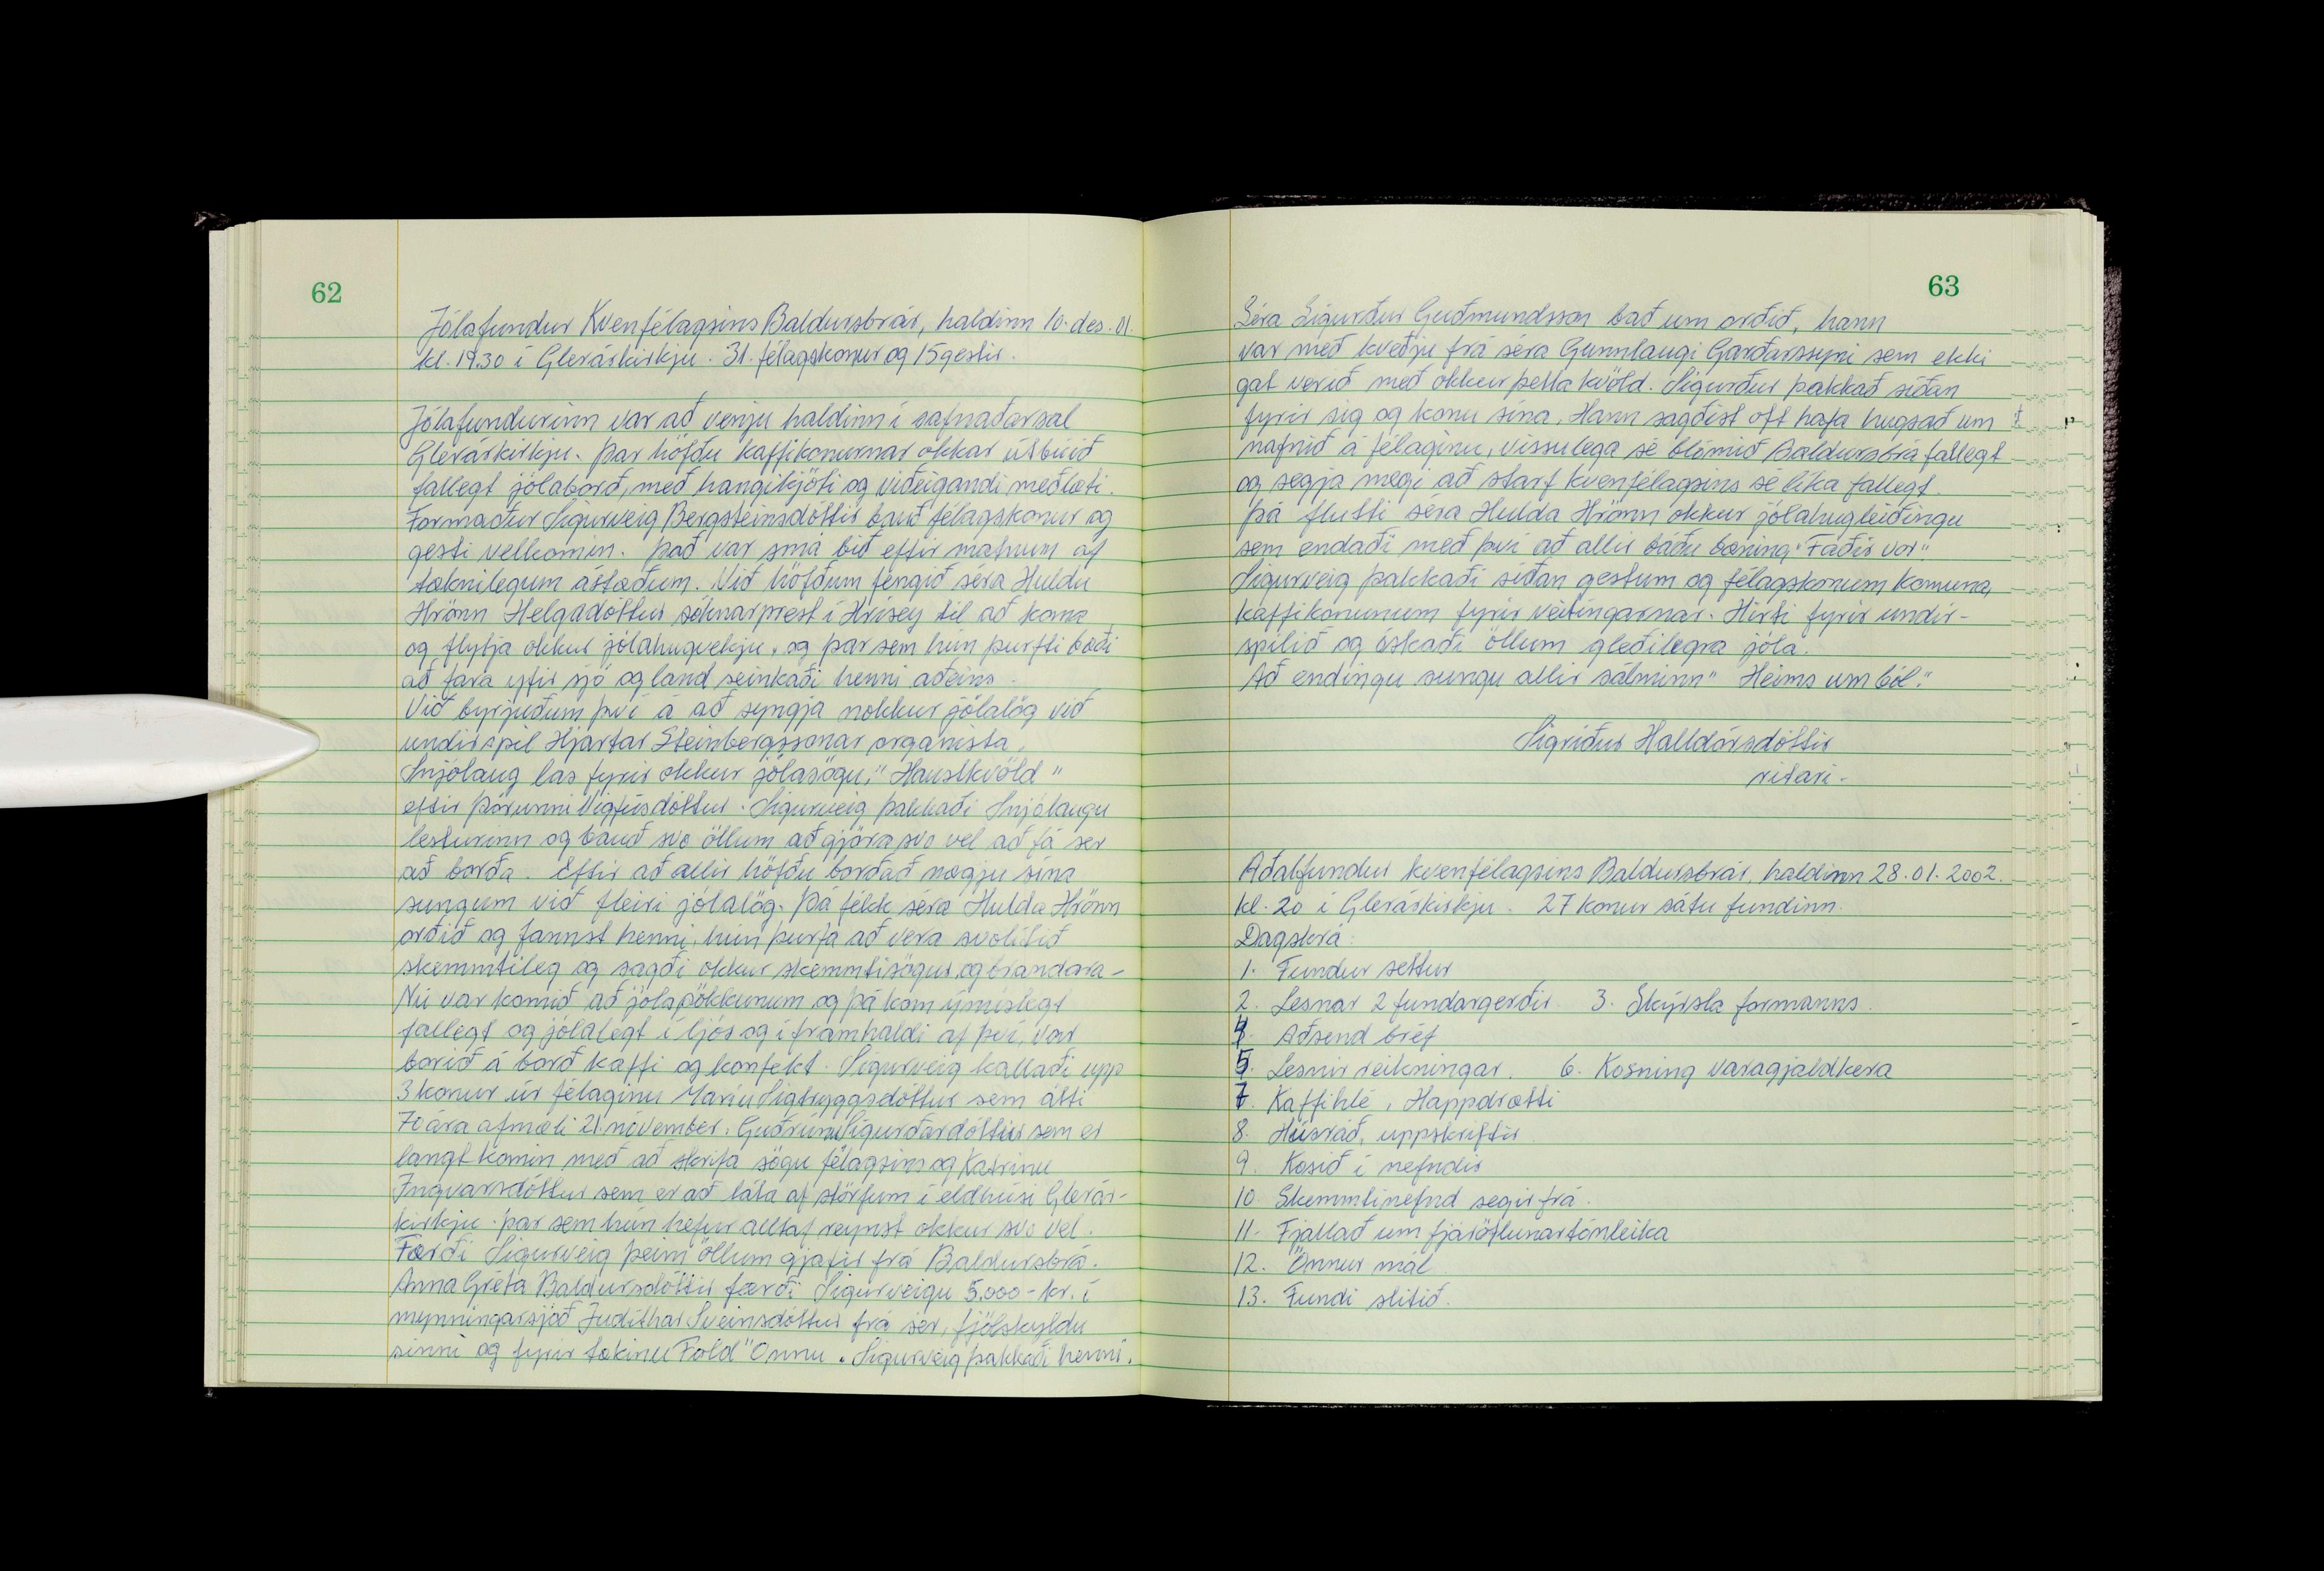 62
Jólafundur Kvenfélagsins Baldursbrár, haldinn 10. des. 01.
kl. 19.30 í Glerárkirkju. 31. félagskonur og 15 gestir.
Jólafundurinn var að venju haldinn í safnaðarsal
Glerárkirkju. Þar höfðu kaffikonurnar okkar útbúið
fallegt jólaborð, með hangikjöti og viðeigandi meðlæti.
Formaður Sigurveig Bergsteinsdóttir bauð félagskonur og
gesti velkomin. Það var smá bið eftir matnum af
tæknilegum ástæðum. Við höfðum fengið séra Huldu
Hrönn Helgadóttur sóknarprest í Hrísey til að koma
og flytja okkur jólahugvekju, og þar sem hún þurfti bæði
að fara yfir sjó og land seinkaði henni aðeins.
Við byrjuðum því á að syngja nokkur jólalög við
undirspil Hjartar Steinbergssonar organista.
Snjólaug las fyrir okkur jólasögu, "Haustkvöld"
eftir Þórunni Vigfúsdóttur. Sigurveig þakkaði Snjólaugu
lesturinn og bauð svo öllum að gjöra svo vel að fá ser
að borða. Eftir að allir höfðu borðað nægju sína
sungum við fleiri jólalög. Þá fékk séra Hulda Hrönn
orðið og fannst henni, hún þurfa að vera svolítið
skemmtileg og sagði okkur skemmtisögur og brandara -
Nú var komið að jólapökkunum og þá kom ýmislegt
fallegt og jólalegt í ljós og í framhaldi af því, var
borið á borð kaffi og konfekt. Sigurveig kallaði upp
3 konur úr félaginu Maríu Sigtryggsdóttur sem átti
70 ára afmæli 21. nóvember. Guðrúnu Sigurðardóttur sem er
langt komin með að skrifa sögu félagsins og Katrínu
Ingvarsdóttur sem er að láta af störfum í eldhúsi Glerár-
kirkju. þar sem hún hefur alltaf reynst okkur svo vel.
Færði Sigurveig þeim öllum gjafir frá Baldursbrá.
Anna Gréta Baldursdóttir færði Sigurveigu 5.000 - kr. í
mynningarsjóð Judithar Sveinsdóttur frá sér, fjölskyldu
sinni og fyrir tækinu Fold "Önnu. Sigurveig þakkaði henni.
63
Séra Sigurður Guðmundsson bað um orðið, hann
var með kveðju frá séra Gunnlaugi Garðarssyni sem ekki
gat verið með okkur þetta kvöld. Sigurður þakkað síðan
fyrir sig og konu sína. Hann sagðist oft hafa hugsað um
nafnið á félaginu, vissulega sé blómið Baldursbrá fallegt
og segja megi að starf kvenfélagsins sé líka fallegt.
Þá flutti séra Hulda Hrönn okkur jólahugleiðingu
sem endaði með því að allir báðu bæning "Faðir vor"
Sigurveig þakkaði síðan gestum og félagskonum komuna,
kaffikonunum fyrir veitingarnar. Hirti fyrir undir-
spilið og óskaði öllum gleðilegra jóla.
Að endingu sungu allir sálminn "Heims um ból."
Sigríður Halldórsdóttir
ritari -
Aðalfundur kvenfélagsins Baldursbrár, haldinn 28.01.2002.
kl. 20 í Glerárkirkju. 27 konur sátu fundinn.
Dagskrá:
1. Fundur settur
2. Lesnar 2 fundargerðir 3. Skýrsla formanns.
4. Aðsend bréf
5. Lesnir reikningar. 6. Kosning varagjaldkera
7. Kaffihlé, Happdrætti
8. Húsráð, uppskriftir
9. Kosið í nefndir
10 Skemmtinefnd segir frá.
11. Fjallað um fjáröflunartónleika
12. Önnur mál
13. Fundi slitið.